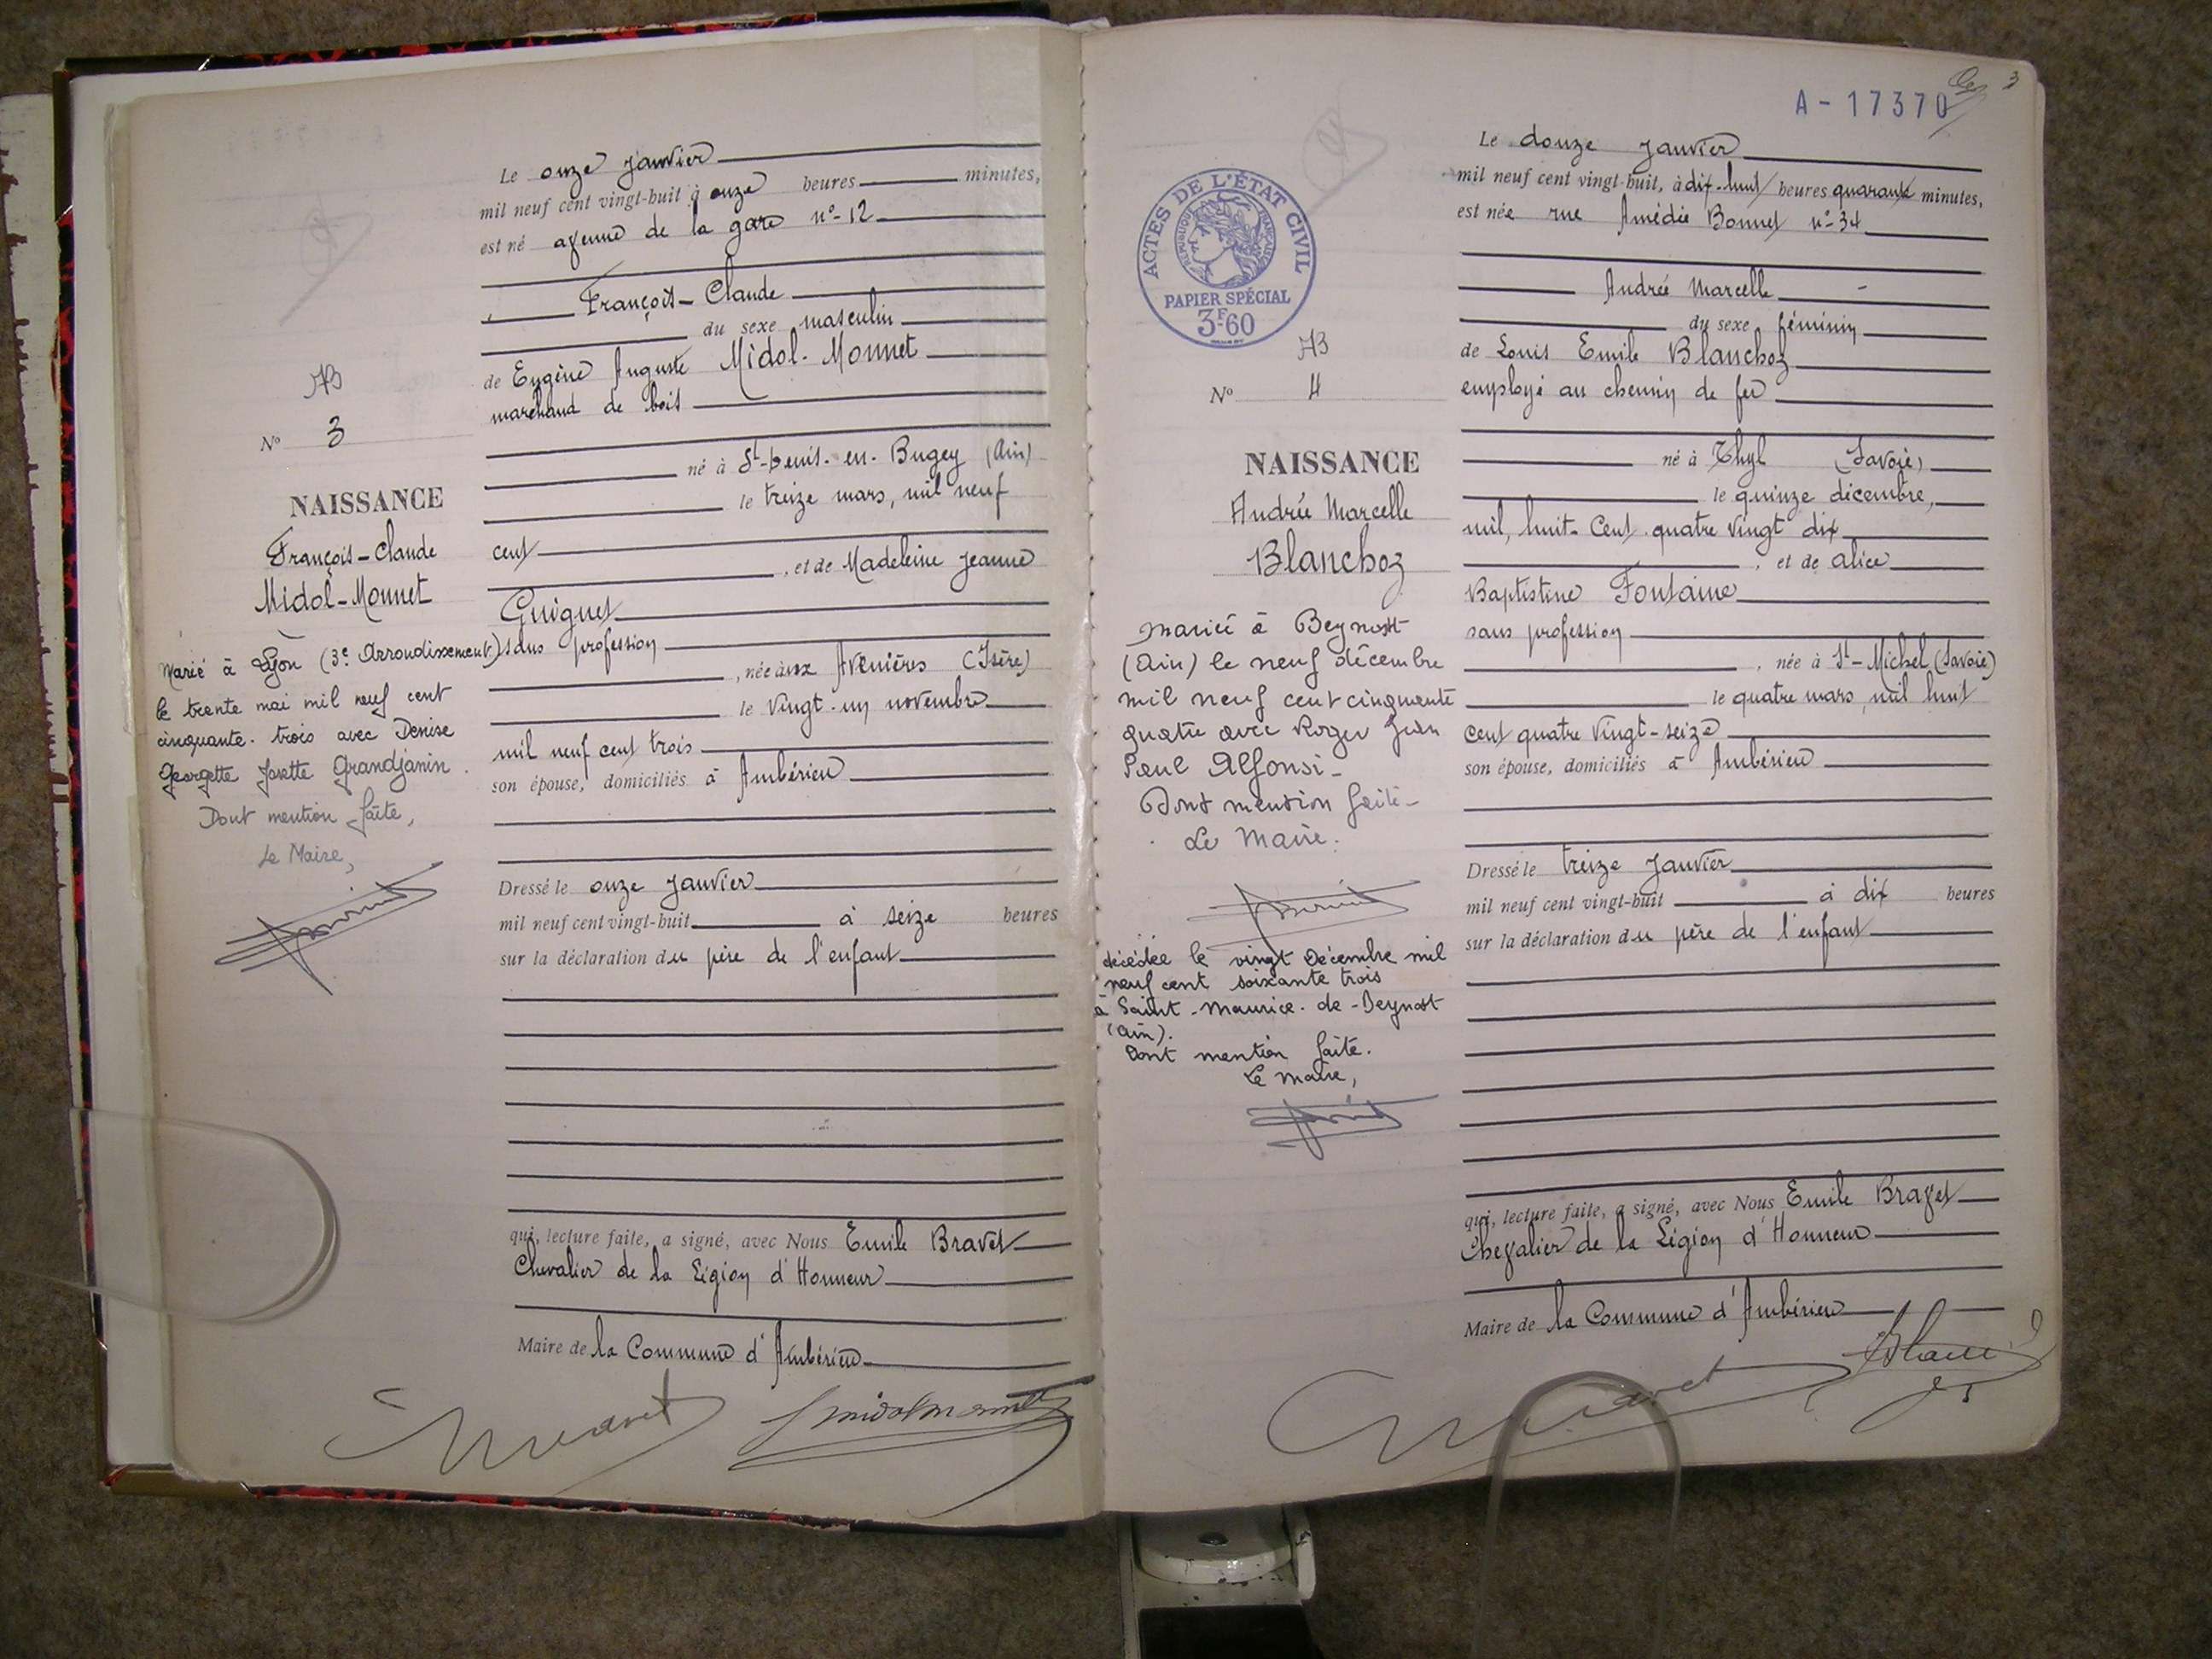 Le onze Janvier
mil neuf cent vingt-huit à onze heures minutes,
est né avenue de la gare n°-12
François-Claude
du sexe masculin
de Eugène Auguste Midol-Monnet
marchand de bois
né à St-Denis-en-Bugey (Ain)
le treize mars, mil neuf
cent
, et de Madeleine Jeanne
Guignet
sans profession
, née aux Avenières (Isère)
le vingt-un novembre
mil neuf cent trois
son épouse, domiciliés à Ambérieu
Dressé le onze Janvier
mil neuf cent vingt-huit à seize heures
sur la déclaration du père de l'enfant
qui, lecture faite, a signé, avec Nous Emile Bravet
Chevalier de la Légion d'Honneur
Maire de la Commune d'Ambérieu
N° 3
NAISSANCE
François-Claude
Midol-Monnet
Marié à Lyon (3e Arrondissement)
le trente mai mil neuf cent
cinquante-trois avec Denise
Georgette Josette Grandjanin.
Dont mention faite,
Le Maire,
3
A-17370
Le douze Janvier
mil neuf cent vingt-huit, à dix-huit heures quarante minutes,
est née rue Amédée Bonnet n°-34
Andrée Marcelle
du sexe féminin
de Louis Emile Blanchoz
employé au chemin de fer
né à Thyl (Savoie)
le quinze décembre,
mil, huit-cent quatre vingt dix
, et de Alice
Baptistine Fontaine
sans profession
, née à St-Michel (Savoie)
le quatre mars, mil huit
cent quatre vingt-seize
son épouse, domiciliés à Ambérieu
Dressé le treize Janvier
mil neuf cent vingt-huit à dix heures
sur la déclaration du père de l'enfant
qui, lecture faite, a signé, avec Nous Emile Bravet
Chevalier de la Légion d'Honneur
Maire de la Commune d'Ambérieu
ACTES DE L'ÉTAT CIVIL
RÉPUBLIQUE FRANÇAISE
PAPIER SPÉCIAL
3F60
N° 4
NAISSANCE
Andrée Marcelle
Blanchoz
mariée à Beynost
(Ain) le neuf décembre
mil neuf cent cinquante
quatre avec Roger Jean
Paul Alfonsi-
Dont mention faite-
Le Maire.
décédée le vingt Décembre mil
neuf cent soixante trois
à Saint-Maurice-de-Beynost
(Ain).
Dont mention faite.
Le Maire,